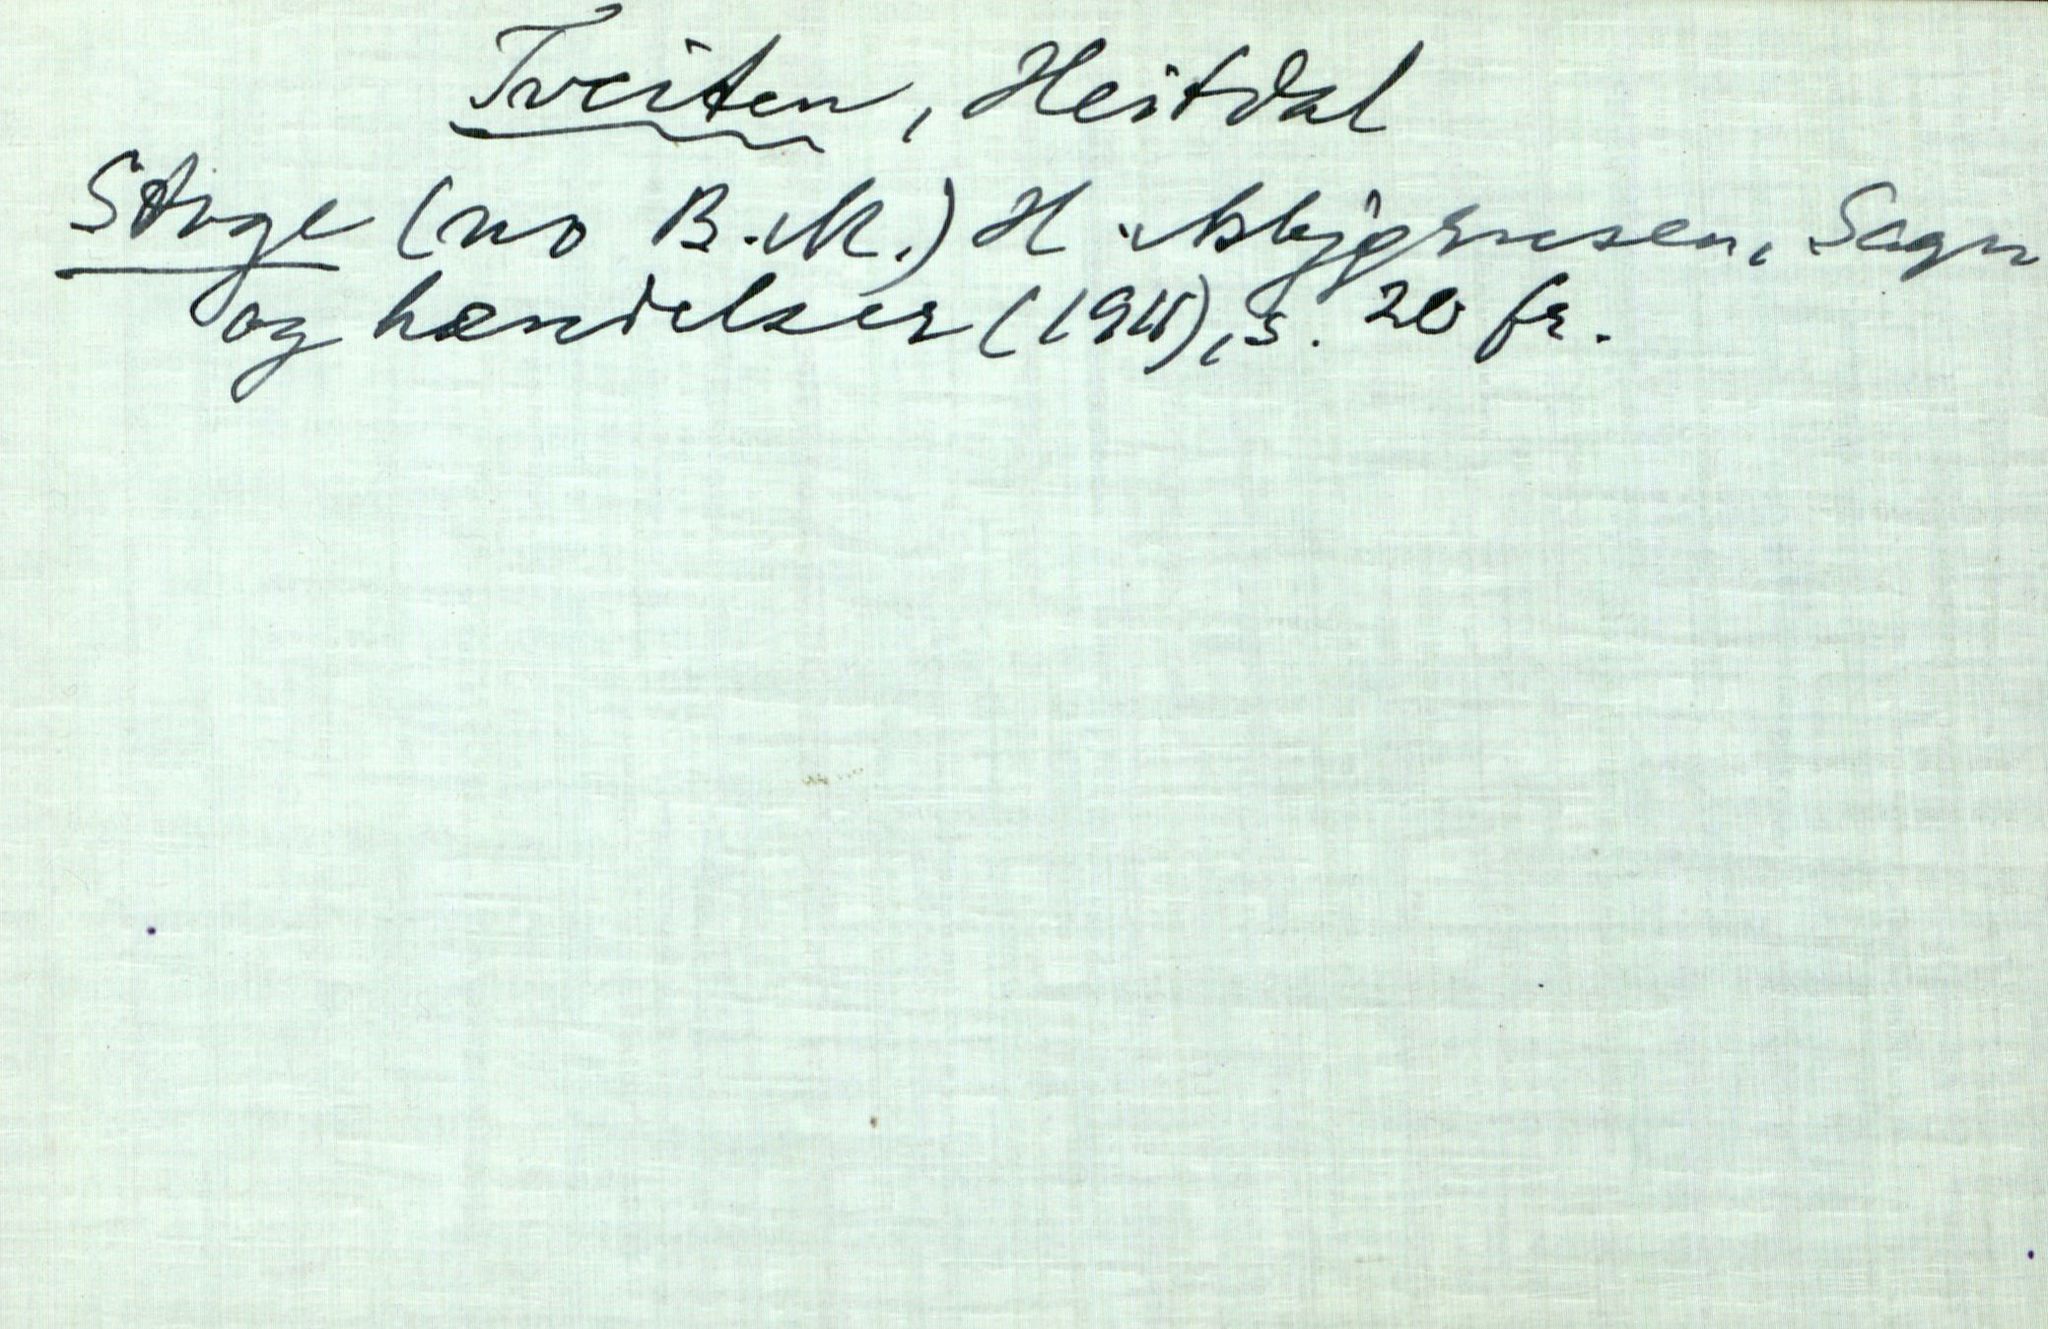 Tveiten, Heitdal
Stoge (no B.M.) H. Asbjørnsen, Sagn
og hændelser (1911), s. 20 fr.